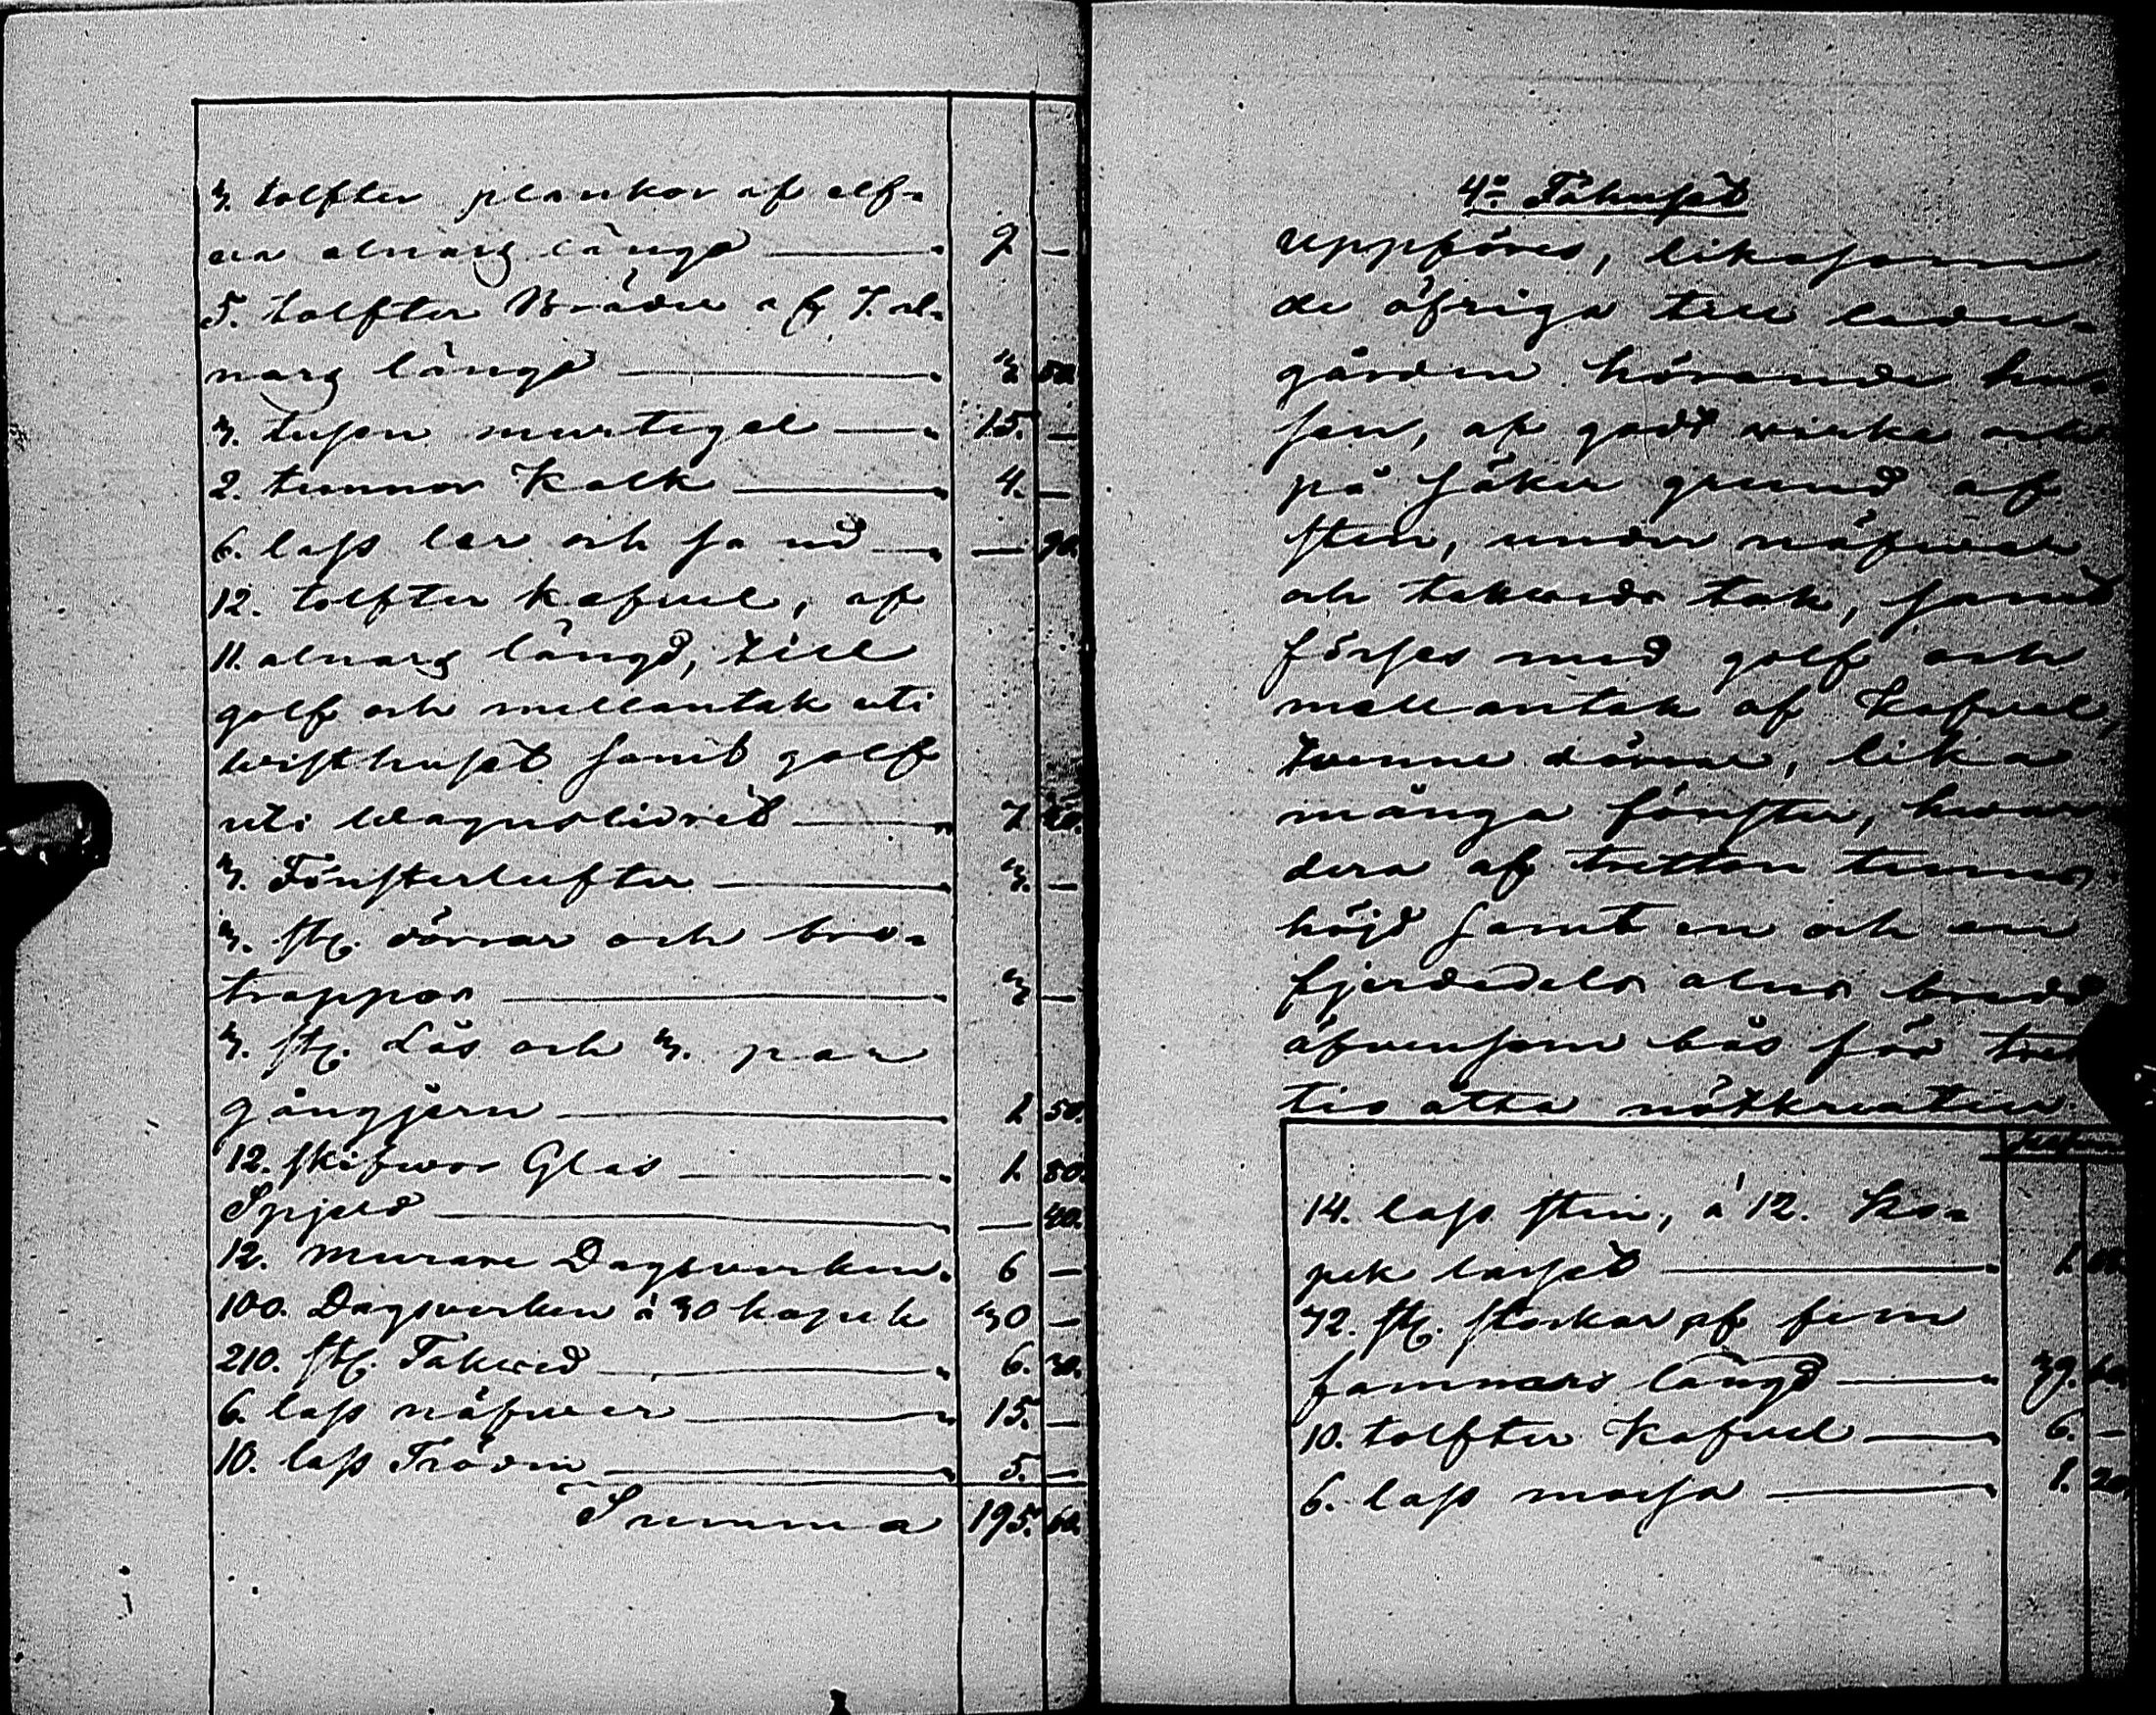 3. tolfter plankor af elf-
va alnars längd — 9 —
5. tolfter Bräder af 7. al-
nars längd — 2 50.
3. tusen murtegel — 15. —
2. tunnor Kalk — 4. —
6. lass ler och sand — — 90.
12. tolfter kafvel, af
11. alnars längd, till
golf och mellantak uti
visthuset samt golf
uti Wagnslidret — 7 20.
3. Fönsterlufter — 3. —
3. st. dörrar och bro-
trappor — 3 —
3. st. Lås och 3. par
gångjern — 1 50.
12. skifvor Glas — 1. 50.
Spjeld — — 40.
12. murare Dagsverken. 6 —
100. Dagsverken à 30 kopek 30 —
210. st. Takved — 6. 30.
6. lass näfver — 15. —
10. lass Tröden — 5. —
Summa 195. 60.
4:o Fähuset
uppföres, likasom
de öfriga till ladu-
gården hörande hu-
sen, af godt virke och
på säker grund af
sten, under näfver
och takveds tak, samt
förses med golf och
mellantak af Kafvel,
tvenne dörrar, lika
många fönster, hvar
dera af tretton tums
höjd samt en och en
fjerdedels alns bredd
äfvensom bås för tret
tio åtta nötkreatur.
14. lass sten, à 12. Ko-
pek lasset — 1.
72. st. stockar af fem
famnars längd — 39. 60.
10. tolfter Kafvel — 6. —
6. lass mossa — 1. 20.